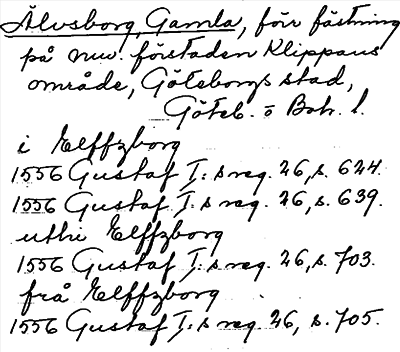 Älvsborg, Gamla, förr fästning
på nuv. förstaden Klippans
område, Göteborgs stad,
Göteb. o Boh. l.
i Elffzborg
1556 Gustaf I:s reg. 26, s. 624.
1556 Gustaf I:s reg. 26, s. 639.
uthi Elffzborg
1556 Gustaf I:s reg. 26, s. 703.
frå Elffzborg
1556 Gustaf I:s reg. 26, s. 705.